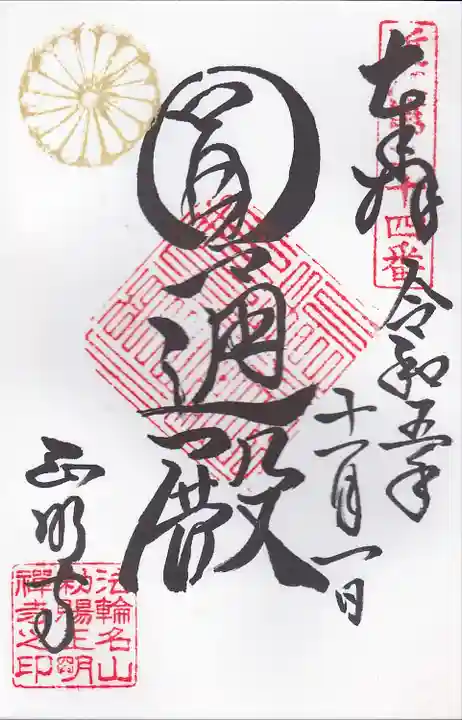 奉拝
十四番
令和五年
十一月一日
圓通殿
正明寺
法輪名山
勅賜正明
禅寺之印